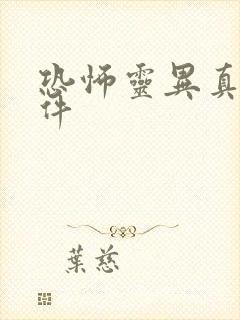 恐怖靈異真
件
葉慈